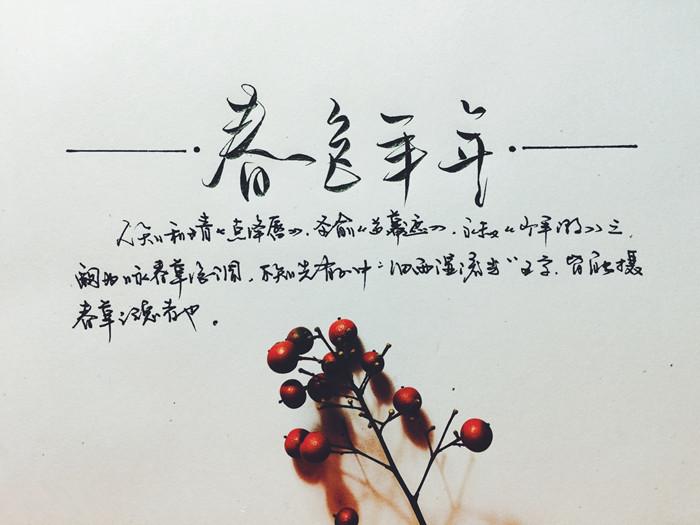 春色年年
人知和靖《点绛唇》、圣俞《苏幕遮》、永叔《少年游》三
阕为咏春草绝调，不知先有正中“细雨湿流光”五字，皆能摄
春草之魂者也。